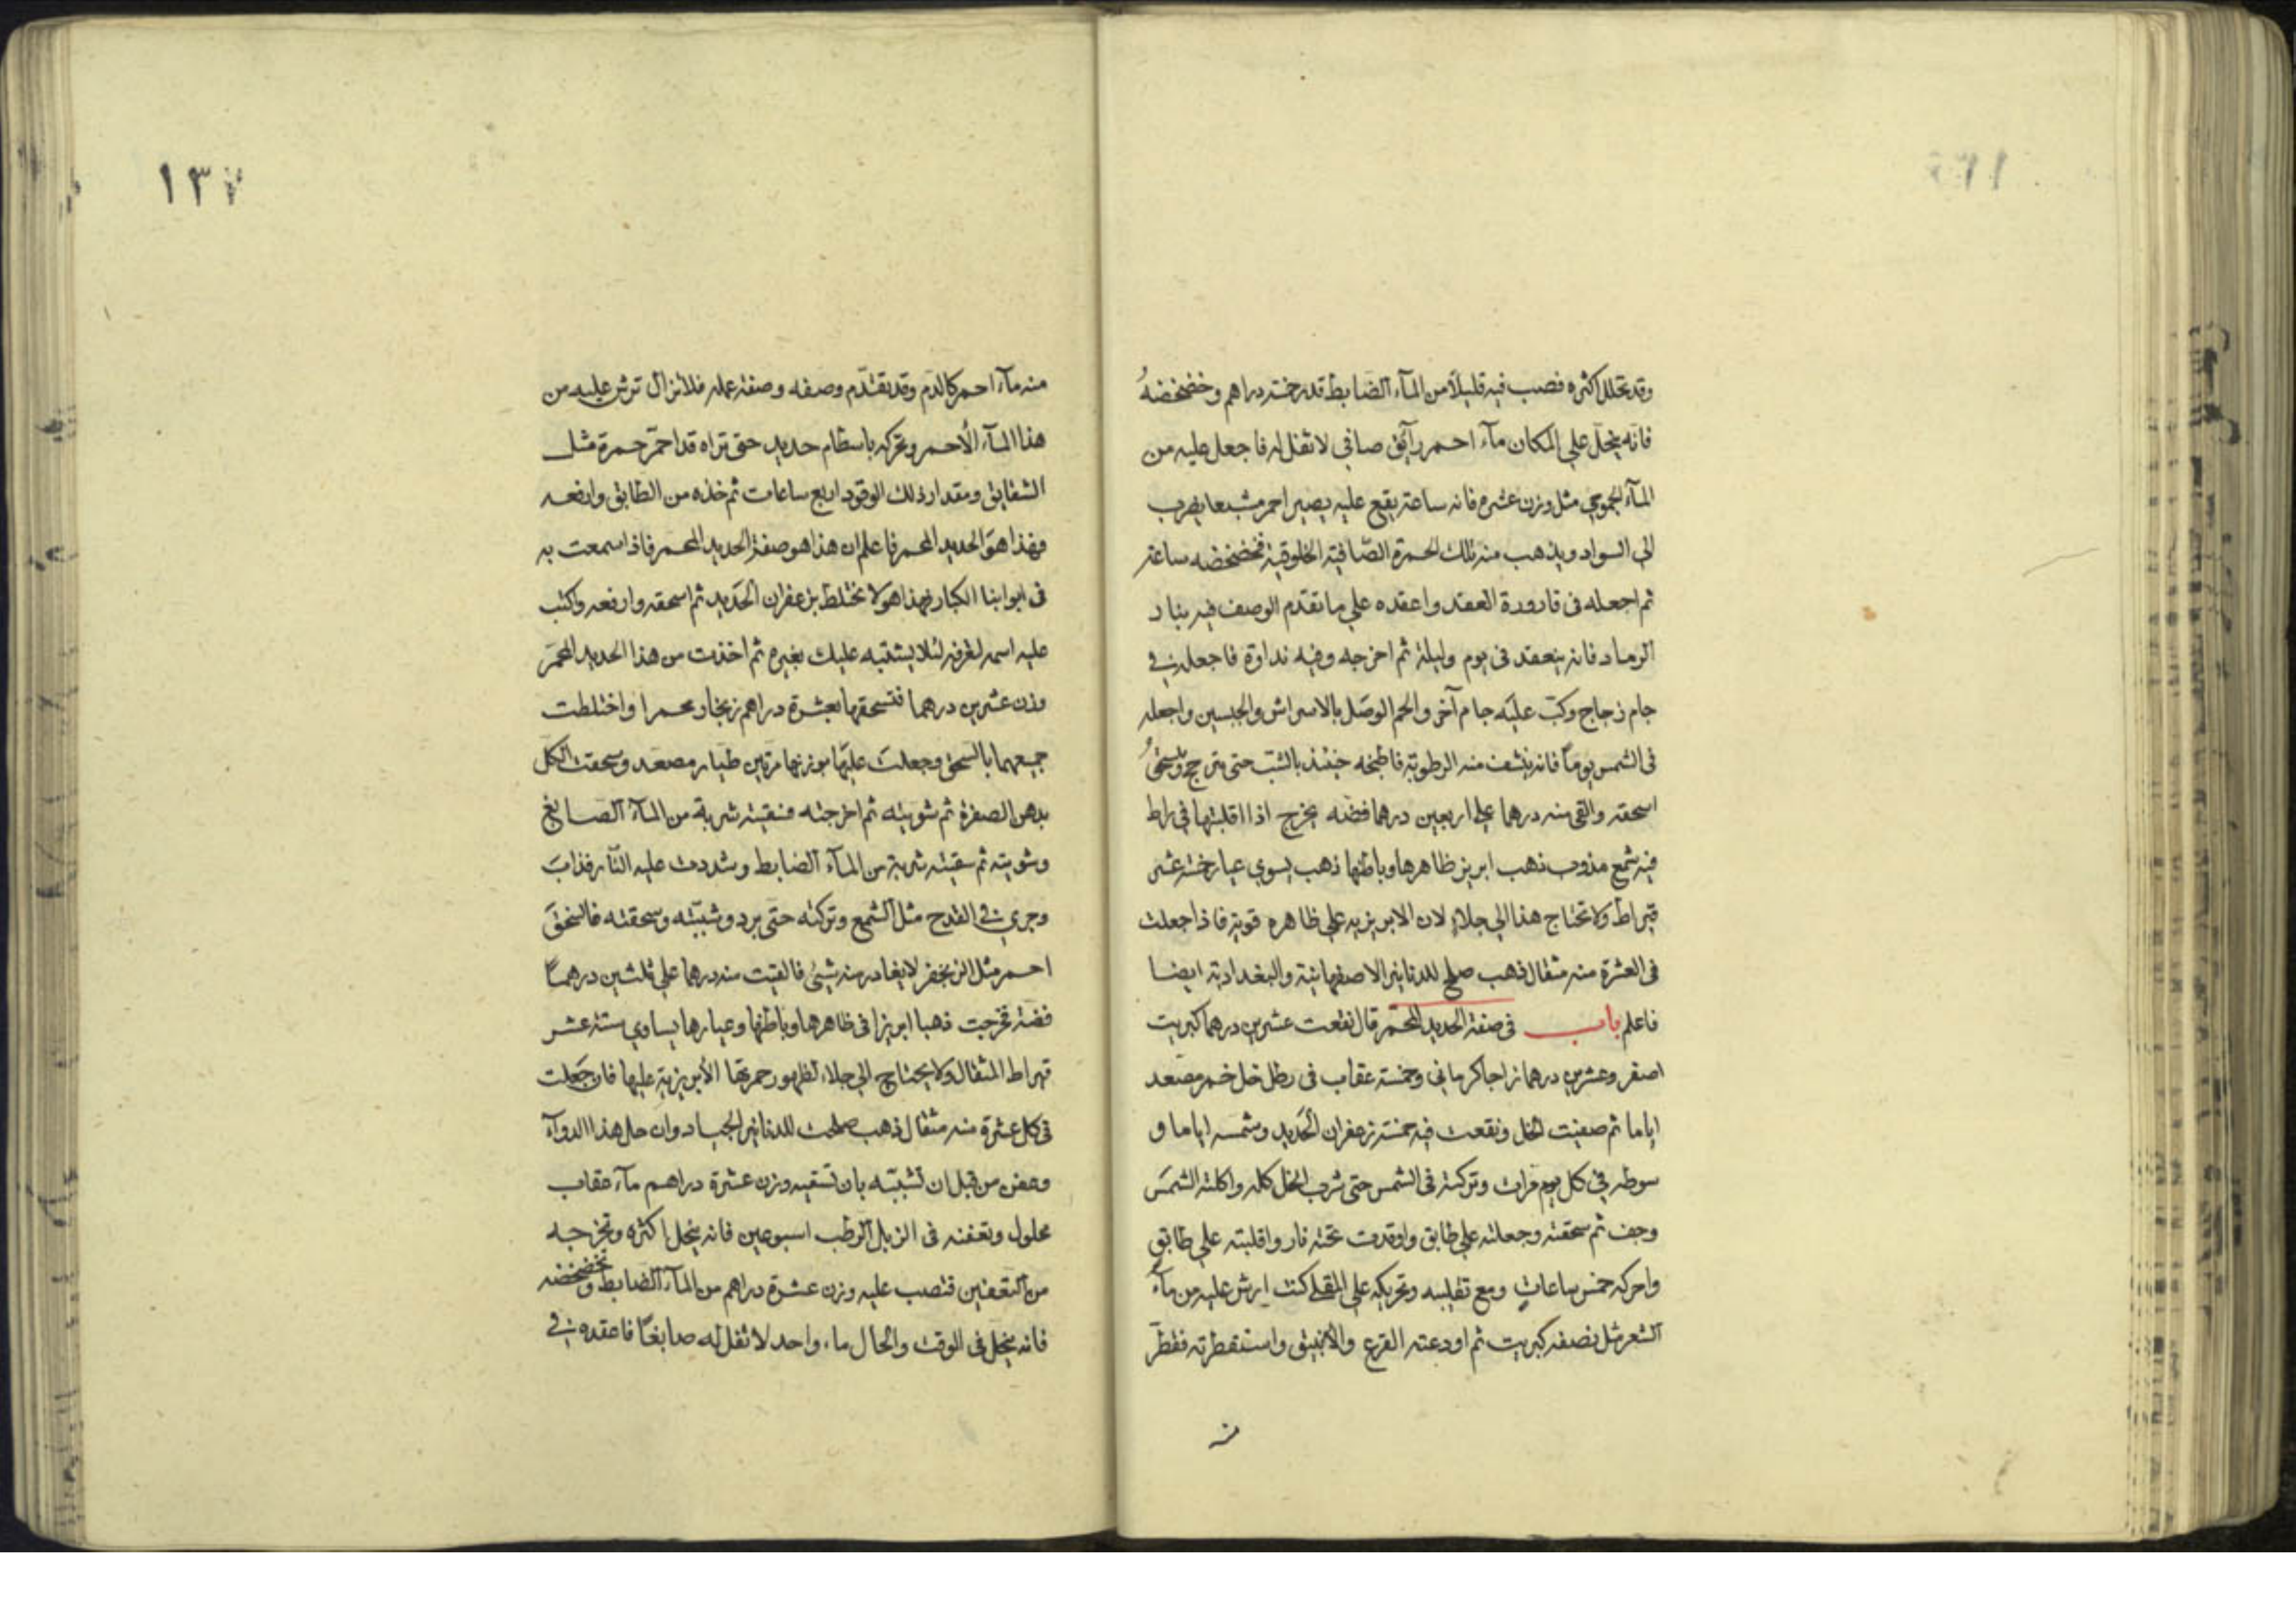 وقد تحلل اكثره فصب فيه قليلاً من المآء الضابط قدر خمسة دراهم وخضخضهُ
فانه ينحل علي المكان مآء احمر رآئق صافي لا ثفل له فاجعل عليه من
المآء مثل وزن عشره فانه ساعة يقع عليه يصير احمر مشبعا يضرب
الي السواد ويذهب منه تلك الحمرة الصّافية الخلوقية فخضخضه ساعة
ثم اجعله في قارورة العقد واعقده علي ما تقدم الوصف فيه بنار
الرماد فانه ينعقد في يوم وليلة ثم اخرجه وفيه نداوة فاجعله في
جام زجاج وكبّ عليه جام آخر والحم الوصل بالاسراش والجبسين واجعله
في الشمس يوماً فانه ينشف منه الرطوبة فاطبخه حينئذ بالشبّ حتى
اسحقه والقي منه درهما علي اربعين درهما فضه يخرج اذا اقلبتها في راط
فيه شمع مذوب ذهب ابريز ظاهرها وباطنها ذهب يسوي عيار خمسة عشر
قيراط ولا تحتاج هذا الي جلاءٍ لان الابريزيه علي ظاهره قوية فاذا جعلت
في العشرة منه مثقال ذهب صلح للدنانير الاصفهانية والبغدادية ايضا
فاعلم باب في صفة الحديد المحمّر قال نقعت عشرين درهما كبريت
اصفر وعشرين درهما زاجا كرماني وخمسة عقاب في رطل خل خمر مصعد
اياما ثم صفيت الخل ونقعت فيه خمسة زعفران الحديد وشمسه اياما و
سوطه في كل يوم مرات وتركته في الشمس حتى شرب الخل كله واكلته الشمس
وجف ثم سحقته وجعلته علي طابق واوقدت تحته نار واقلبته علي طابق
واحركه خمس ساعات ومع تقليبه وتحريكه علي المقلي كنت ارش عليه من مآء
الشعر مثل نصفه كبريت ثم اودعته القرع والانبيق واستقطرته فقطّر
منه
١٣٧
منه مآء احمر كالدم وقد تقدّم وصفه وصفة عمله فلا تزال ترش عليه من
هذا المآء الأحمر وتحركه باسطام حديد حتى تراه قد احمّر حمرة مثل
الشقايق ومقدار ذلك الوقود اربع ساعات ثم خذه من الطابق وارفعه
فهذا هوَ الحديد المحمر فاعلم ان هذا هو صفة الحديد المحمر فاذا سمعت به
في ابوابنا الكبار فهذا هو لا تختلط بزعفران الحديد ثم اسحقه وارفعه واكتب
عليه اسمه لتعرفه لئلا يشتبه عليك بغيره ثم اخذت من هذا الحديد المحمّر
وزن عشرين درهما فتسحقها بعشرة دراهم زنجار محمرا واختلطت
جميعهما بالسحق وجعلت عليها موزنها مرتين طيار مصعد وسحقت الكل
بدهن الصفرة ثم شويته ثم اخرجته فسقيته شربة من المآء الصابغ
وشويته ثم سقيته شربة من المآء الضابط وشددت عليه النّار فذاب
وجري في القدح مثل الشمع وتركته حتى برد وشببّته وسحقته فانسحق
احمر مثل الزنجفر لا يغادر منه شيئ فالقيت منه درهما علي ثلثين درهماً
فضة فخرجت ذهبا ابريزا في ظاهرها وباطنها وعيارها يساوي ستة عشر
قيراط المثقال ولا يحتاج الي جلاء لظهور حمرتها الأبريزية عليها فان جعلت
في كل عشرة منه مثقال ذهب صلحت للدنانير الجياد وان حل هذا الدوآء
وعفن من قبل ان تشببّه بان تسقيه وزن عشرة دراهم مآء عقاب
محلول وتعفنه في الزبل الرطب اسبوعين فانه ينحل اكثره وتخرجه
من التعفين فتصب عليه وزن عشرة دراهم من المآء الضابط وتخضخضه
فانه ينحل في الوقت والحال ماء واحد لا ثفل له صابغاً فاعقده في